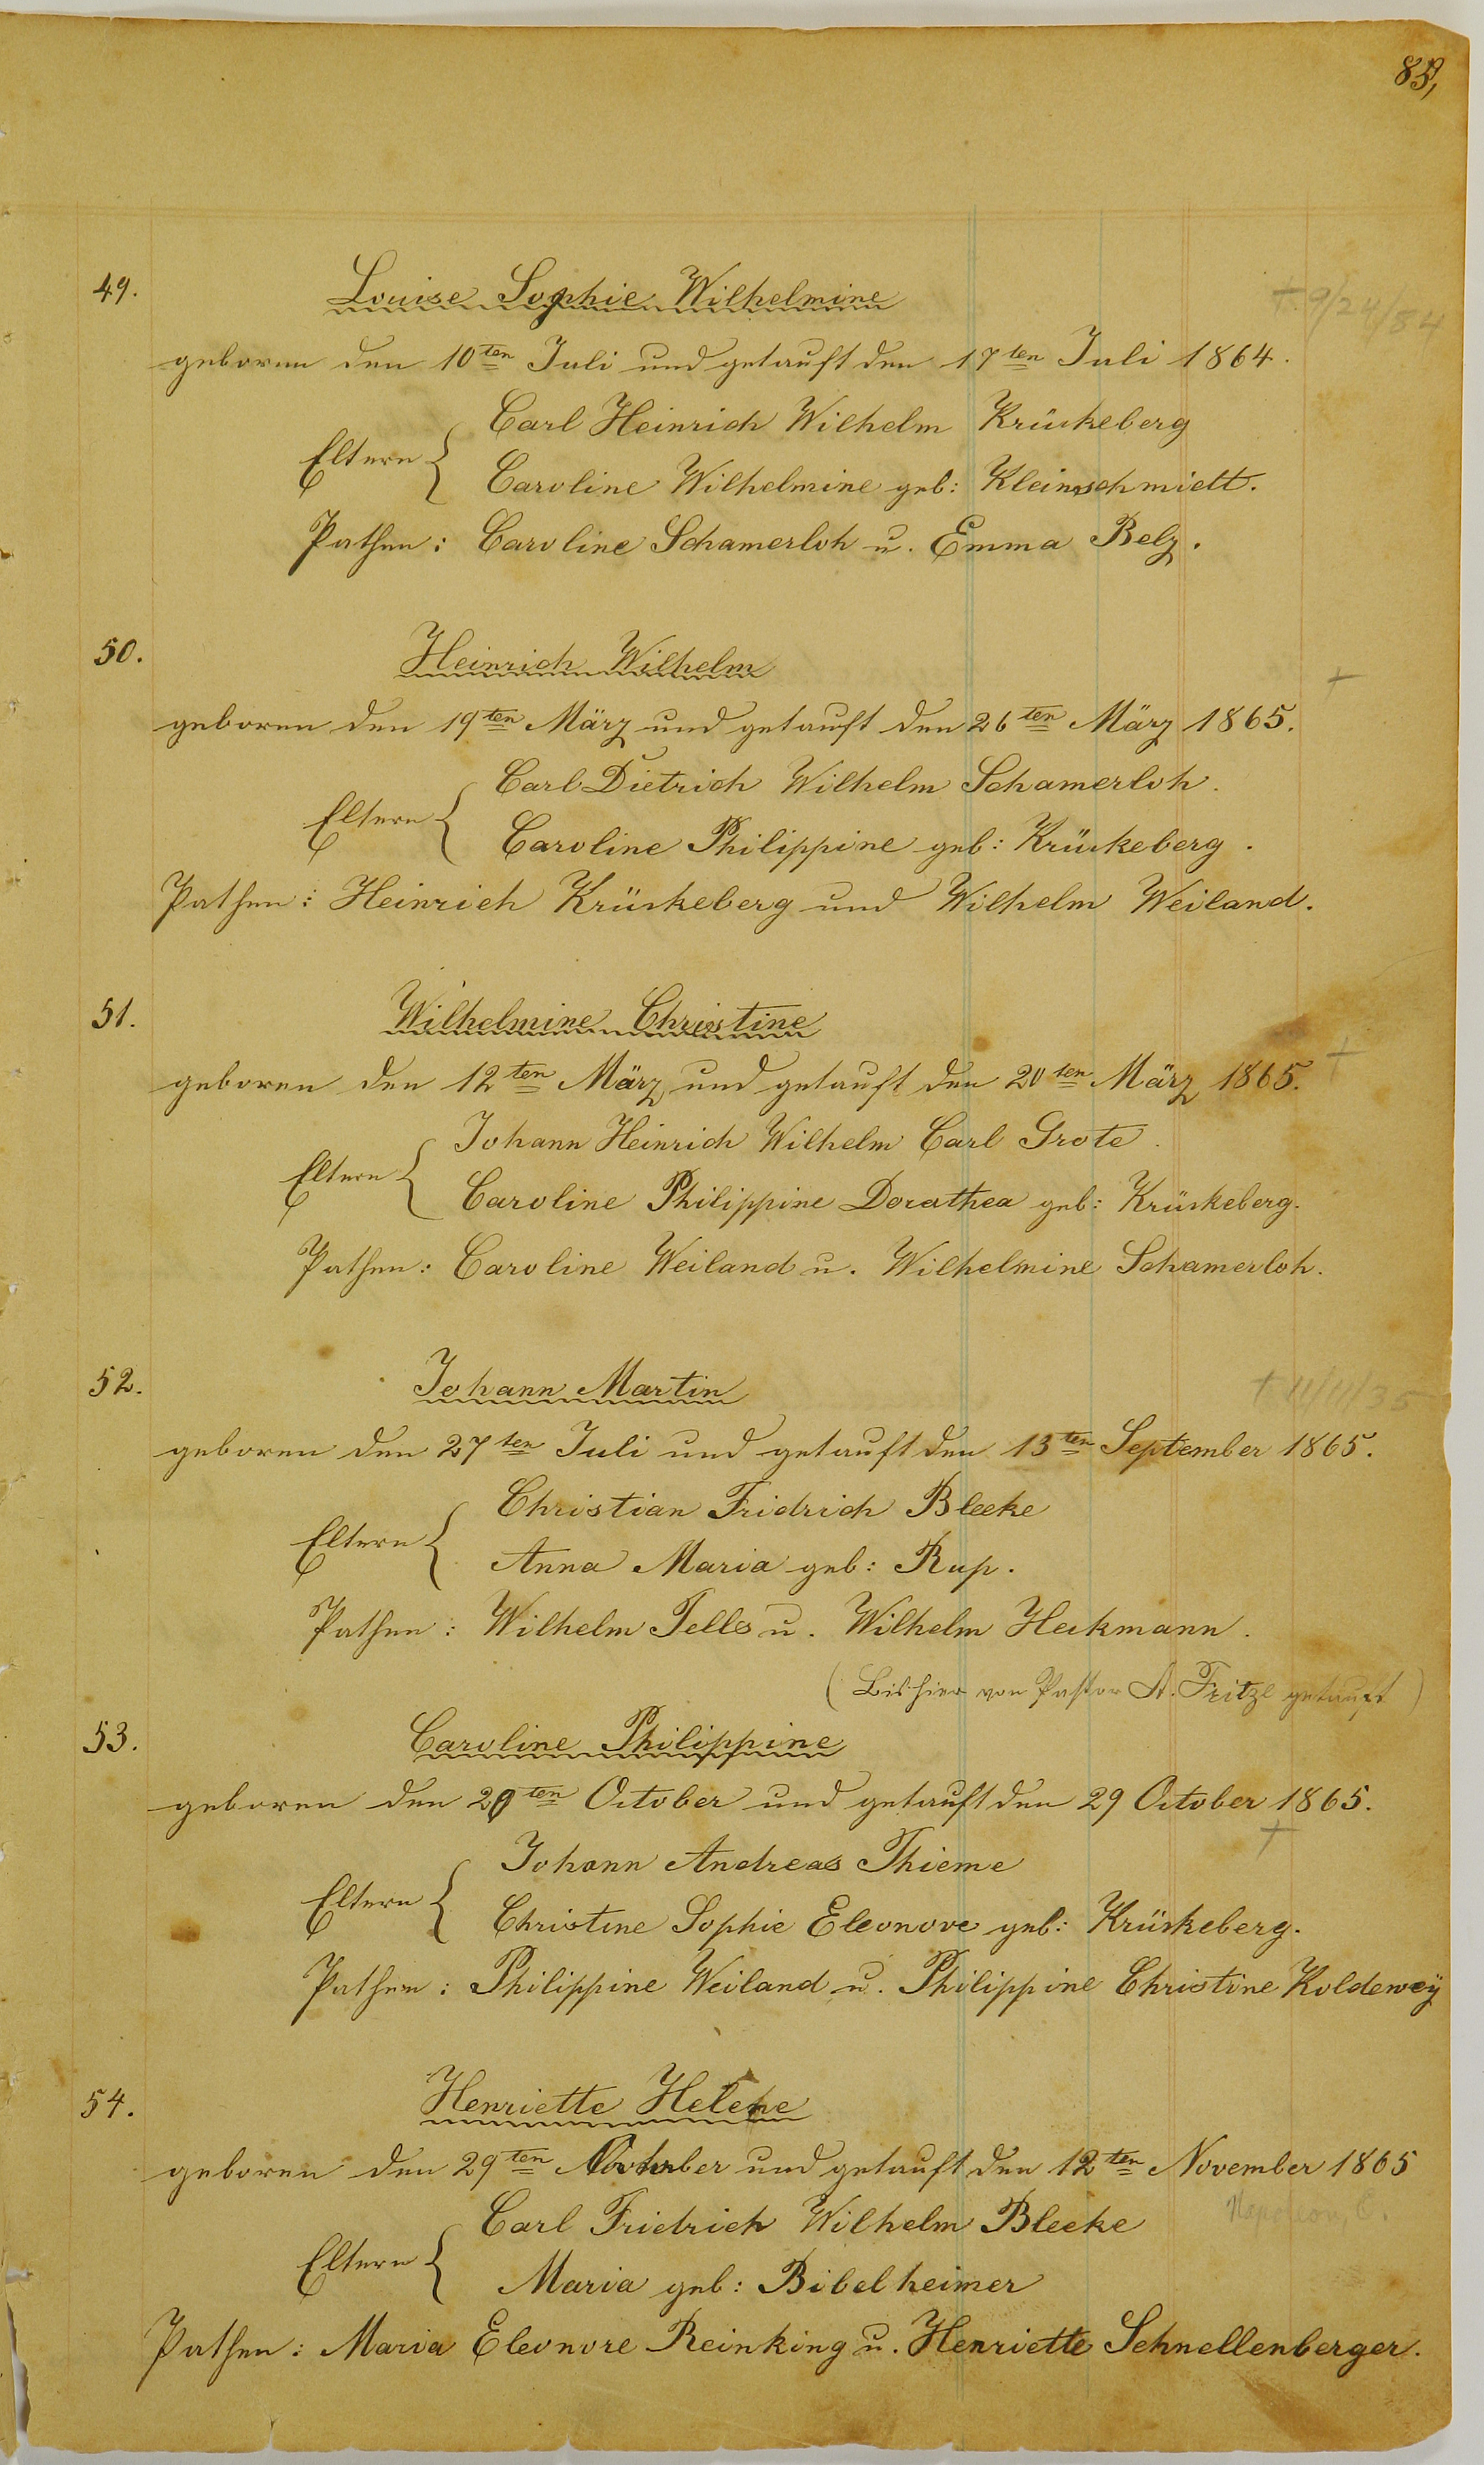 49.
Louise Sophie Wilhelmine
† 9/24/54
geboren den 10ten Juli und getauft den 17ten Juli 1864.
Eltern { Carl Heinrich Wilhelm Krückeberg
Caroline Wilhelmine geb: Kleinschmidt.
Pathen: Caroline Schamerloh u. Emma Belz.
50.
Heinrich Wilhelm
†
geboren den 19ten März und getauft den 26ten März 1865.
Eltern { Carl Dietrich Wilhelm Schamerloh.
Caroline Philippine geb: Krückeberg.
Pathen: Heinrich Krückeberg und Wilhelm Weiland.
51.
Wilhelmine Christine
†
geboren den 12ten März und getauft den 20ten März 1865.
Eltern { Johann Heinrich Wilhelm Carl Grote.
Caroline Philippine Dorathea geb: Krückeberg.
Pathen: Caroline Weiland u. Wilhelmine Schamerloh.
52.
Johann Martin
† 11/11/35
geboren den 27ten Juli und getauft den 13ten September 1865.
Eltern { Christian Fridrich Bleeke
Anna Maria geb: Rup.
Pathen: Wilhelm Tells u. Wilhelm Heckmann.
(Bis hier von Pastor A. Fritze getauft)
53.
Caroline Philippine
geboren den 20ten October und getauft den 29 October 1865.
†
Eltern { Johann Andreas Thieme
Christine Sophie Eleonore geb: Krückeberg.
Pathen: Philippine Weiland u. Philippine Christine Koldeweÿ
54.
Henriette Helene
geboren den 29ten October und getauft den 12ten November 1865
Napoleon, O.
Eltern { Carl Friedrich Wilhelm Bleeke
Maria geb: Bibelheimer
Pathen: Maria Eleonore Reinking u. Henriette Schnellenberger.